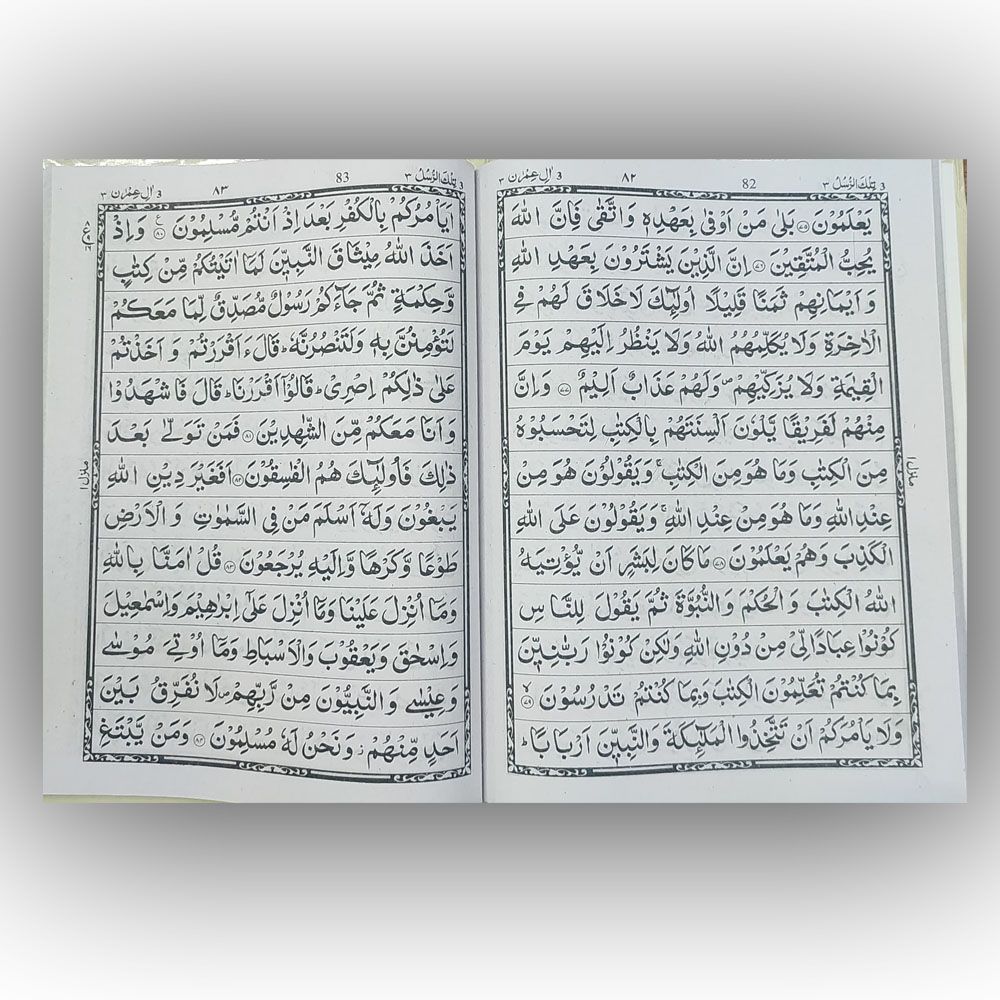 3 تِلْكَ الرُّسُلُ ٣
82
٨٢
3 اٰلِ عِمْرٰن ٣
يَعْلَمُوْنَ ۝٧٥ بَلٰى مَنْ اَوْفٰى بِعَهْدِهٖ وَاتَّقٰى فَاِنَّ اللّٰهَ
يُحِبُّ الْمُتَّقِيْنَ ۝٧٦ اِنَّ الَّذِيْنَ يَشْتَرُوْنَ بِعَهْدِ اللّٰهِ
وَاَيْمَانِهِمْ ثَمَنًا قَلِيْلًا اُولٰٓئِكَ لَا خَلَاقَ لَهُمْ فِي
الْاٰخِرَةِ وَلَا يُكَلِّمُهُمُ اللّٰهُ وَلَا يَنْظُرُ اِلَيْهِمْ يَوْمَ
الْقِيٰمَةِ وَلَا يُزَكِّيْهِمْ ۪ وَلَهُمْ عَذَابٌ اَلِيْمٌ ۝٧٧ وَاِنَّ
مِنْهُمْ لَفَرِيْقًا يَّلْوٗنَ اَلْسِنَتَهُمْ بِالْكِتٰبِ لِتَحْسَبُوْهُ
مِنَ الْكِتٰبِ وَمَا هُوَ مِنَ الْكِتٰبِ ۚ وَيَقُوْلُوْنَ هُوَ مِنْ
عِنْدِ اللّٰهِ وَمَا هُوَ مِنْ عِنْدِ اللّٰهِ ۚ وَيَقُوْلُوْنَ عَلَى اللّٰهِ
الْكَذِبَ وَهُمْ يَعْلَمُوْنَ ۝٧٨ مَا كَانَ لِبَشَرٍ اَنْ يُّؤْتِيَهُ
اللّٰهُ الْكِتٰبَ وَالْحُكْمَ وَالنُّبُوَّةَ ثُمَّ يَقُوْلَ لِلنَّاسِ
كُوْنُوْا عِبَادًا لِّيْ مِنْ دُوْنِ اللّٰهِ وَلٰكِنْ كُوْنُوْا رَبّٰنِيّٖنَ
بِمَا كُنْتُمْ تُعَلِّمُوْنَ الْكِتٰبَ وَبِمَا كُنْتُمْ تَدْرُسُوْنَ ۙ۝٧٩
وَلَا يَاْمُرَكُمْ اَنْ تَتَّخِذُوا الْمَلٰٓئِكَةَ وَالنَّبِيّٖنَ اَرْبَابًا ؕ
منزل ١
3 تِلْكَ الرُّسُلُ ٣
83
٨٣
3 اٰلِ عِمْرٰن ٣
اَيَاْمُرُكُمْ بِالْكُفْرِ بَعْدَ اِذْ اَنْتُمْ مُّسْلِمُوْنَ ۝٨٠ وَاِذْ
اَخَذَ اللّٰهُ مِيْثَاقَ النَّبِيّٖنَ لَمَا اٰتَيْتُكُمْ مِّنْ كِتٰبٍ
وَّحِكْمَةٍ ثُمَّ جَآءَكُمْ رَسُوْلٌ مُّصَدِّقٌ لِّمَا مَعَكُمْ
لَتُؤْمِنُنَّ بِهٖ وَلَتَنْصُرُنَّهٗ ؕ قَالَ ءَاَقْرَرْتُمْ وَاَخَذْتُمْ
عَلٰى ذٰلِكُمْ اِصْرِيْ ؕ قَالُوْٓا اَقْرَرْنَا ؕ قَالَ فَاشْهَدُوْا
وَاَنَا مَعَكُمْ مِّنَ الشّٰهِدِيْنَ ۝٨١ فَمَنْ تَوَلّٰى بَعْدَ
ذٰلِكَ فَاُولٰٓئِكَ هُمُ الْفٰسِقُوْنَ ۝٨٢ اَفَغَيْرَ دِيْنِ اللّٰهِ
يَبْغُوْنَ وَلَهٗٓ اَسْلَمَ مَنْ فِي السَّمٰوٰتِ وَالْاَرْضِ
طَوْعًا وَّكَرْهًا وَّاِلَيْهِ يُرْجَعُوْنَ ۝٨٣ قُلْ اٰمَنَّا بِاللّٰهِ
وَمَآ اُنْزِلَ عَلَيْنَا وَمَآ اُنْزِلَ عَلٰٓى اِبْرٰهِيْمَ وَاِسْمٰعِيْلَ
وَاِسْحٰقَ وَيَعْقُوْبَ وَالْاَسْبَاطِ وَمَآ اُوْتِيَ مُوْسٰى
وَعِيْسٰى وَالنَّبِيُّوْنَ مِنْ رَّبِّهِمْ ۪ لَا نُفَرِّقُ بَيْنَ
اَحَدٍ مِّنْهُمْ ۫ وَنَحْنُ لَهٗ مُسْلِمُوْنَ ۝٨٤ وَمَنْ يَّبْتَغِ
منزل ١